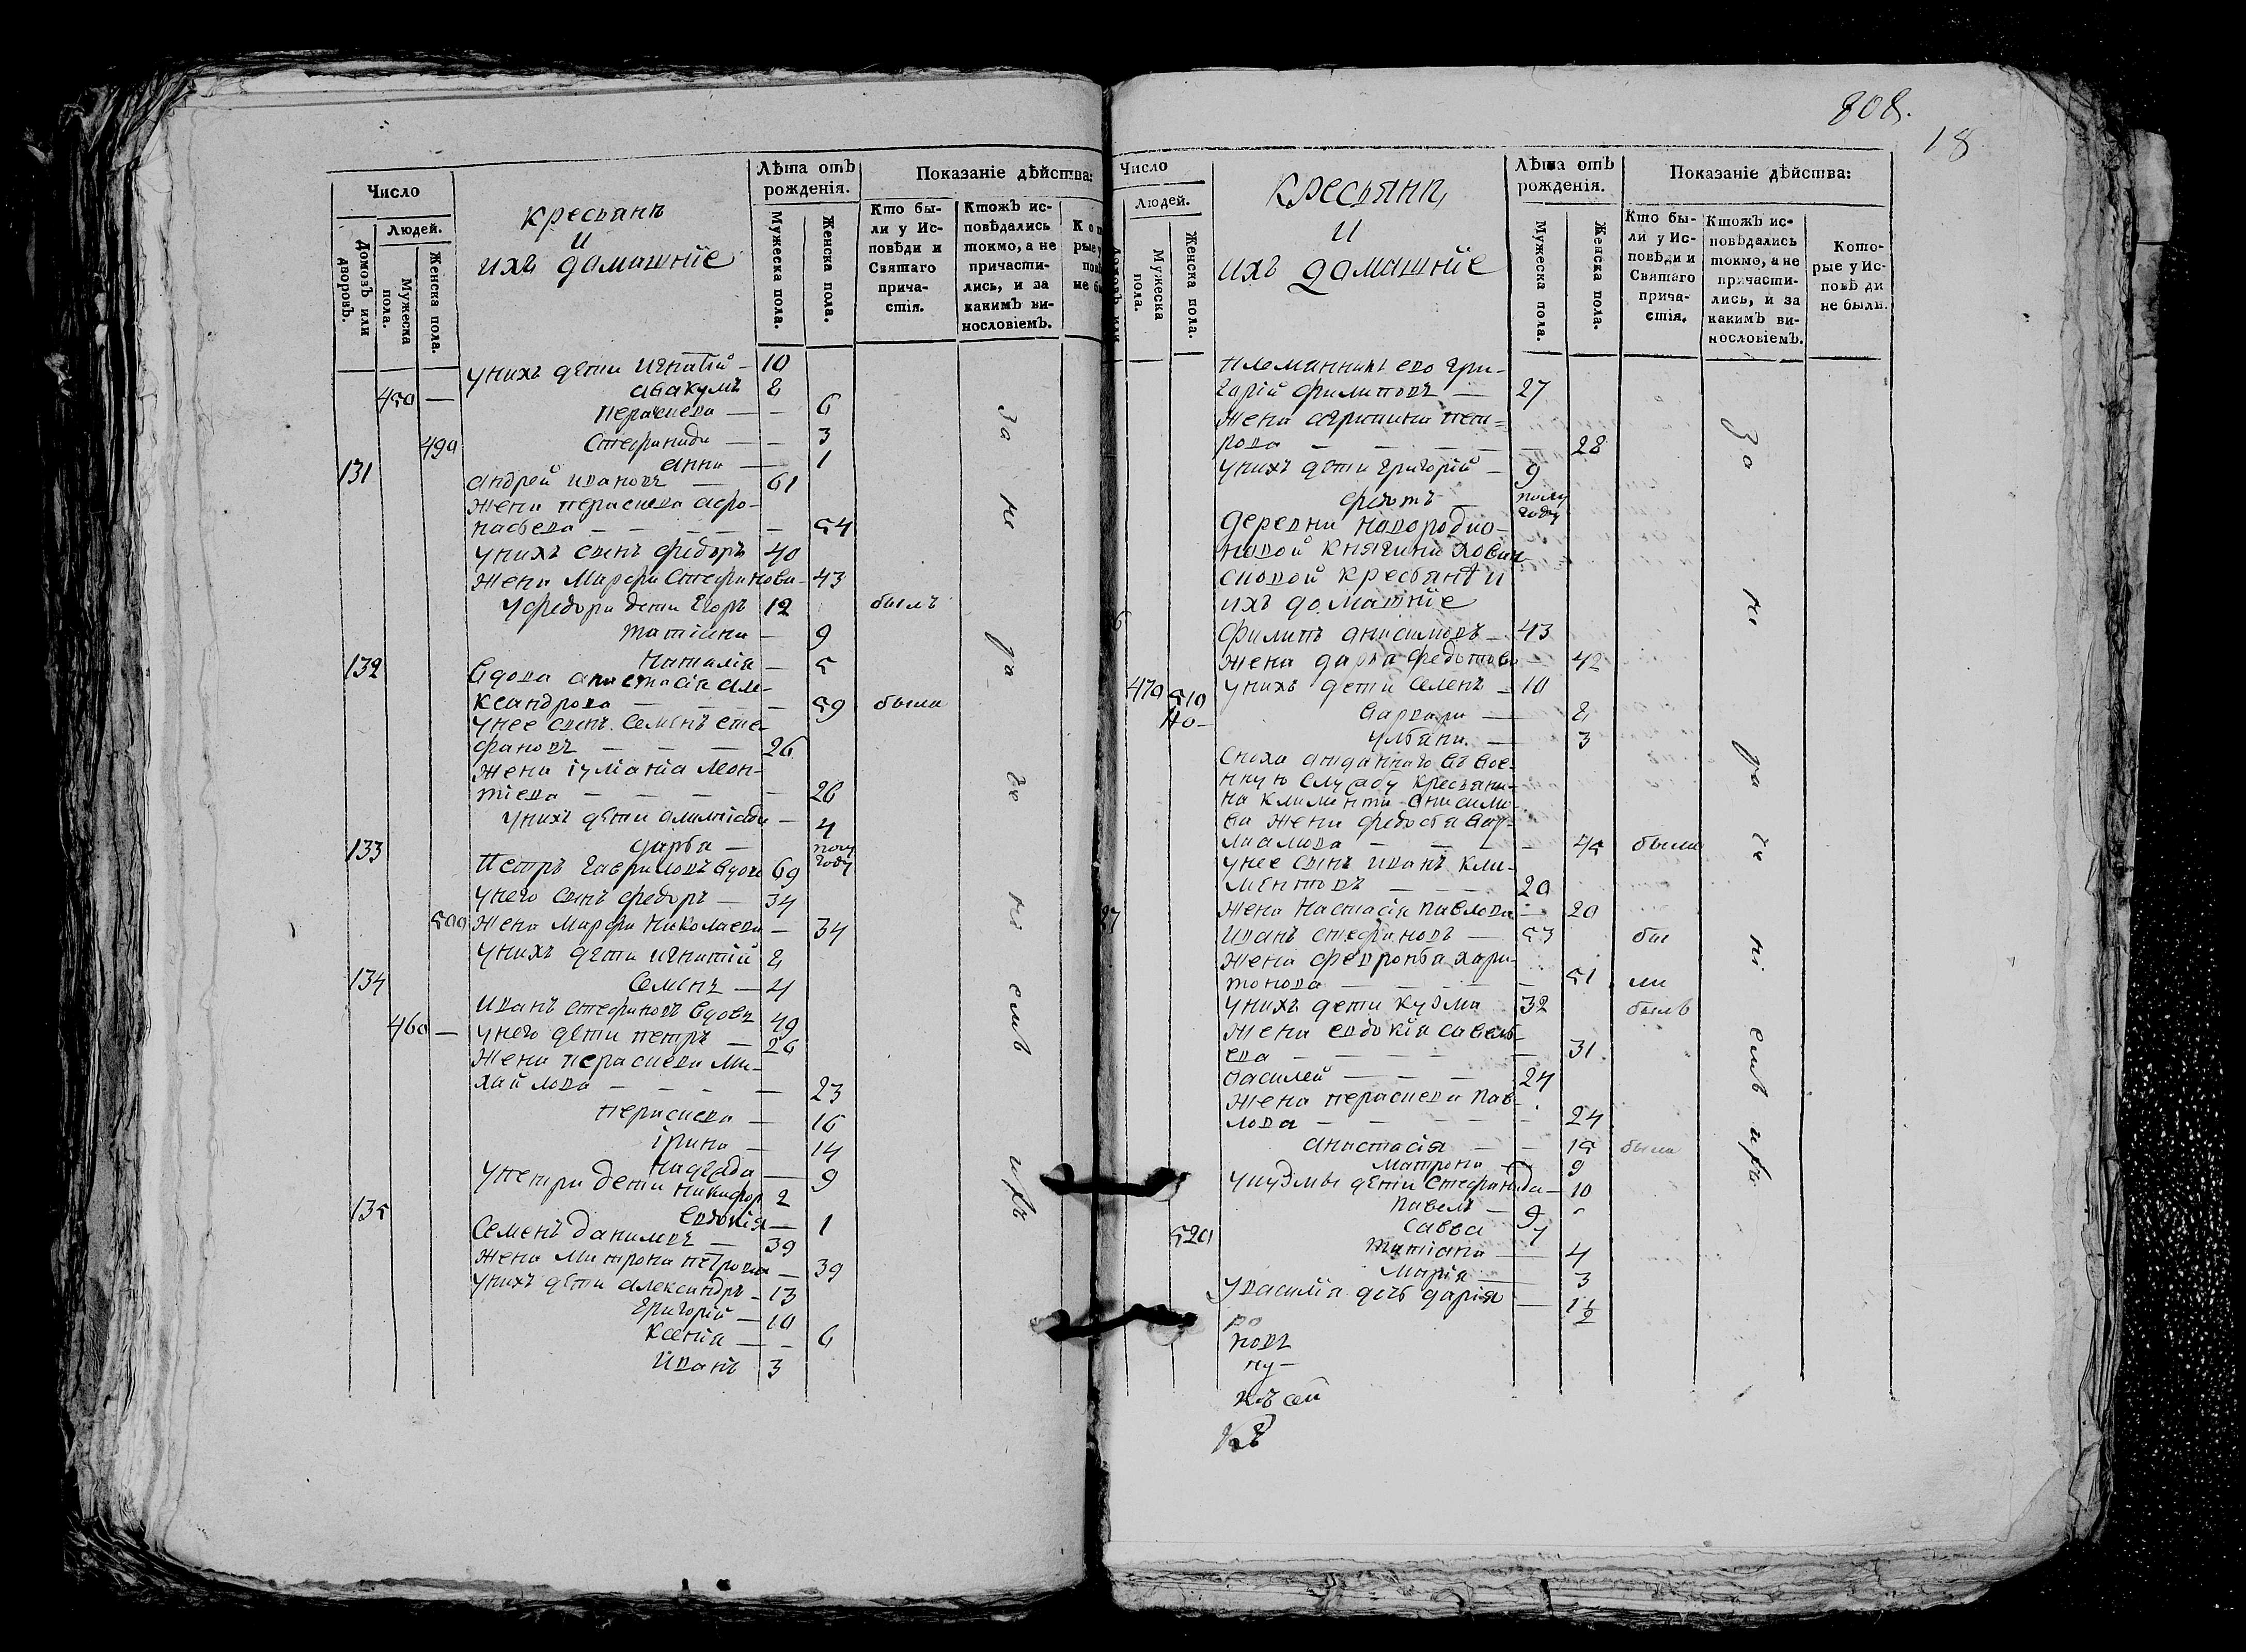 Число
Людей.
Домовъ или дворовъ.
Мужеска пола.
Женска пола.
крестьянъ
и
ихъ домашніе
Лѣта отъ рожденія.
Мужеска пола.
Женска пола.
Показаніе дѣйства:
Кто бы-
ли у Ис-
повѣди и
Святаго
прича-
стія.
Ктожъ ис-
повѣдались
токмо, а не
причасти-
лись, и за
какимъ ви-
нословіемъ.
унихъ дети игнатій — 10
450 — авакумъ 8
ператева — — 6
490 Стефанида — — 3
анна — 1
131 андрей ивановъ — 61
жена параскева афо-
насьева — — — — 54
унихъ сынъ федоръ 40
жена Марфа стефанова — 43
уфедора дети Егоръ 12 былъ
татіана — 9
Наталія — 5
132 вдова анастасія але-
ксандрова — — — 59 была
унее сынъ Семенъ сте-
фановъ — — — 26
жена іуліанія леон-
тіева — — — — 26
унихъ дети олимпіада — 4
дарья — полу году
133 Петръ гавриловъ вдовъ 69
унего сынъ федоръ — 34
500 жена Марфа Николаева — 34
унихъ дети игнатій 8
Семенъ — 4
134 иванъ стефановъ вдовъ 49
460 — унего дети петръ — 26
жена параскева ми-
хайлова — — — — 23
параскева — 16
ірина — 14
надежда — 9
упетра дети никифоръ 2
евдокія — 1
135 Семенъ даниловъ — 39
жена Матрона петрова — 39
унихъ дети александръ — 13
григорій — 10
ксенія — — 6
иванъ 3
за не ра че ні емъ ихъ
808.
18
Число
Людей.
Мужеска пола.
Женска пола.
крестьянъ
и
ихъ домашніе
Лѣта отъ рожденія.
Мужеска пола.
Женска пола.
Показаніе дѣйства:
Кто бы-
ли у Ис-
повѣди и
Святаго
прича-
стія.
Ктожъ ис-
повѣдались
токмо, а не
причасти-
лись, и за
какимъ ви-
нословіемъ.
Кото-
рые у Ис-
повѣ ди
не были.
племянникъ его гри-
горій филиповъ — 27
жена агрипина пет-
рова — — — — 28
унихъ дети григорій — 9
федотъ — полу году
деревни
княгини
крестьянѣ и
ихъ домашніе
филипъ анисимовъ — 43
жена дарья федотова — 42
470 510 унихъ дети семенъ — 10
варвара — 8
ульяна — 3
сноха отданнаго въ вое-
нную службу крестьяни-
на климента анисимо-
ва жена федосья вар-
ламова — — — — 45 была
унее сынъ иванъ кли-
ментовъ — — — 20
жена настасія павлова — 20
иванъ стефановъ — 53 бы
жена февронья хари-
тонова — — — — 51 ли
унихъ дети кузма 32 былъ
жена евдокія савель-
ева — — — — — 31
василей — — — 24
жена параскева пав-
лова — — — — — 24
анастасія — — 15 была
матрона — 9
укузмы дети стефанида — 10
павелъ — 9
савва 7
520 татіана — 4
Марія — 3
увасилія дочь дарія — 1 1/2
ро
повъ
ну —
за не ра че ні емъ ихъ